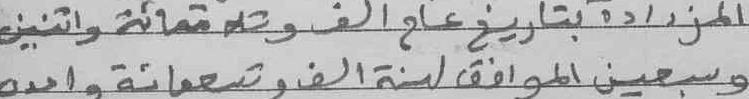 المزدادة بتاريخ عام الف وثلاثمائة واثنين
وسبعين الموافق لسنة الف وتسعمائة واحده